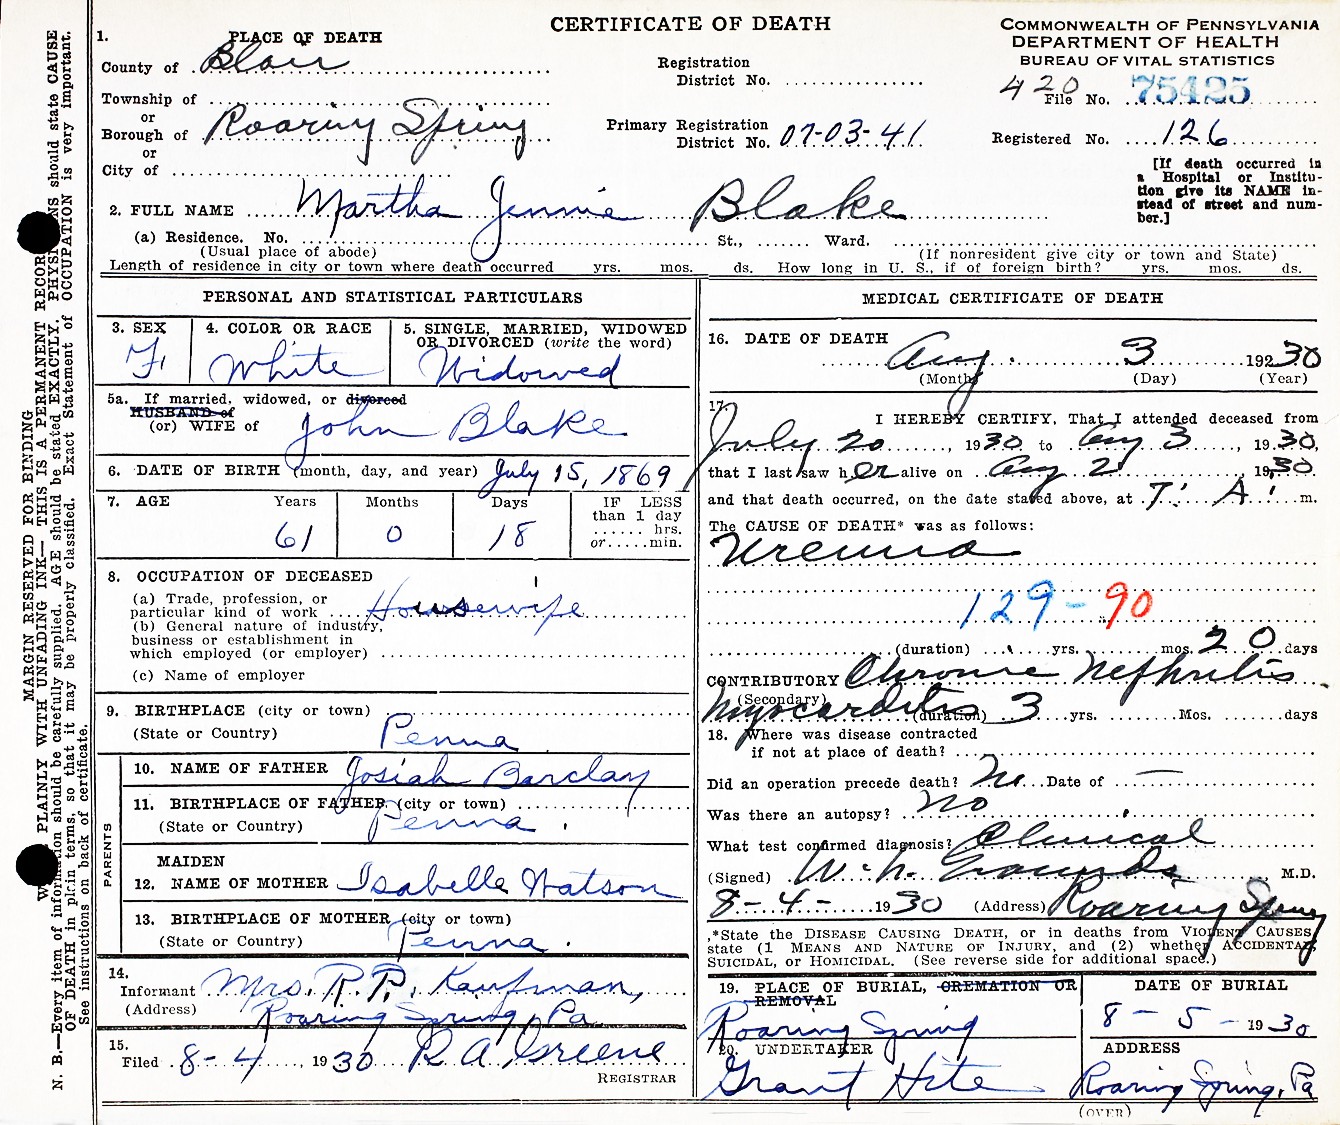 CERTIFICATE OF DEATH
COMMONWEALTH OF PENNSYLVANIA
DEPARTMENT OF HEALTH
BUREAU OF VITAL STATISTICS
1. PLACE OF DEATH
County of Blair
Registration District No.
420 File No. 75425
Township of
or
Borough of Roaring Spring
Primary Registration District No. 07-03-41
Registered No. 126
or
City of
[If death occurred in a Hospital or Institution give its NAME instead of street and number.]
2. FULL NAME Martha Jennie Blake
(a) Residence. No. St., Ward.
(Usual place of abode) (If nonresident give city or town and State)
Length of residence in city or town where death occurred yrs. mos. ds. How long in U. S., if of foreign birth? yrs. mos. ds.
PERSONAL AND STATISTICAL PARTICULARS
3. SEX F.
4. COLOR OR RACE White
5. SINGLE, MARRIED, WIDOWED
OR DIVORCED (write the word)
Widowed
5a. If married, widowed, or divorced
HUSBAND of
(or) WIFE of John Blake
6. DATE OF BIRTH (month, day, and year) July 15, 1869
7. AGE Years Months Days IF LESS
than 1 day
61 0 18 hrs.
or min.
8. OCCUPATION OF DECEASED
(a) Trade, profession, or
particular kind of work Housewife
(b) General nature of industry,
business or establishment in
which employed (or employer)
(c) Name of employer
9. BIRTHPLACE (city or town)
(State or Country) Penna
PARENTS
10. NAME OF FATHER Josiah Barclay
11. BIRTHPLACE OF FATHER (city or town)
(State or Country) Penna.
MAIDEN
12. NAME OF MOTHER Isabelle Watson
13. BIRTHPLACE OF MOTHER (city or town)
(State or Country) Penna.
14.
Informant Mrs. R. P. Kaufman,
(Address) Roaring Spring, Pa
15.
Filed 8-4, 1930 R A Greene
REGISTRAR
MEDICAL CERTIFICATE OF DEATH
16. DATE OF DEATH
Aug. 3 192 30
(Month) (Day) (Year)
17. I HEREBY CERTIFY, That I attended deceased from
July 20, 1930 to Aug 3, 1930,
that I last saw her alive on Aug 2, 1930
and that death occurred, on the date stated above, at 7: A. m.
The CAUSE OF DEATH* was as follows:
Uremia
129-90
(duration) yrs. mos. 20 days
CONTRIBUTORY Chronic Nephritis
(Secondary)
Myocarditis (duration) 3 yrs. Mos. days
18. Where was disease contracted
if not at place of death?
Did an operation precede death? No Date of —
Was there an autopsy? No
What test confirmed diagnosis? Clinical
(Signed) W. N. M.D.
8-4- 1930 (Address) Roaring Spring
*State the DISEASE CAUSING DEATH, or in deaths from VIOLENT CAUSES,
state (1 MEANS AND NATURE OF INJURY, and (2) whether ACCIDENTAL,
SUICIDAL, OR HOMICIDAL. (See reverse side for additional space.)
19. PLACE OF BURIAL, CREMATION OR
REMOVAL
Roaring Spring
DATE OF BURIAL
8 - 5 - 1930
20. UNDERTAKER
Grant Hite
ADDRESS
Roaring Spring, Pa
(OVER)
MARGIN RESERVED FOR BINDING
PLAINLY WITH UNFADING INK—THIS IS A PERMANENT RECORD
N. B.—Every item of information should be carefully supplied. AGE should be stated EXACTLY. should state CAUSE
OF DEATH in plain terms, so that it may be properly classified. Exact Statement of OCCUPATION is very important.
See instructions on back of certificate.